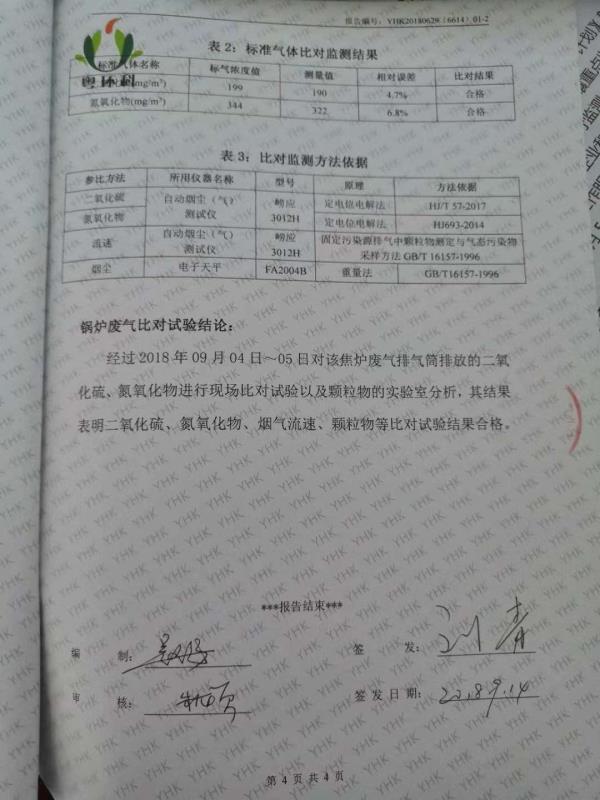 报告编号：YHK20180629（6614）01-2
表 2：标准气体比对监测结果
粤环科
标准气体名称 标气浓度值 测量值 相对误差 比对结果
(mg/m³) 199 190 4.7% 合格
氮氧化物(mg/m³) 344 322 6.8% 合格
表 3：比对监测方法依据
参比方法 所用仪器名称 型号 原理 方法依据
二氧化硫 自动烟尘（气） 崂应 定电位电解法 HJ/T 57-2017
氮氧化物 测试仪 3012H 定电位电解法 HJ693-2014
流速 自动烟尘（气） 崂应 固定污染源排气中颗粒物测定与气态污染物
测试仪 3012H 采样方法 GB/T 16157-1996
烟尘 电子天平 FA2004B 重量法 GB/T16157-1996
锅炉废气比对试验结论：
经过 2018 年 09 月 04 日～05 日对该焦炉废气排气筒排放的二氧
化硫、氮氧化物进行现场比对试验以及颗粒物的实验室分析，其结果
表明二氧化硫、氮氧化物、烟气流速、颗粒物等比对试验结果合格。
***报告结束***
编 制： 签 发：刘青
审 核： 签发日期：2018.9.14
第 4 页 共 4 页